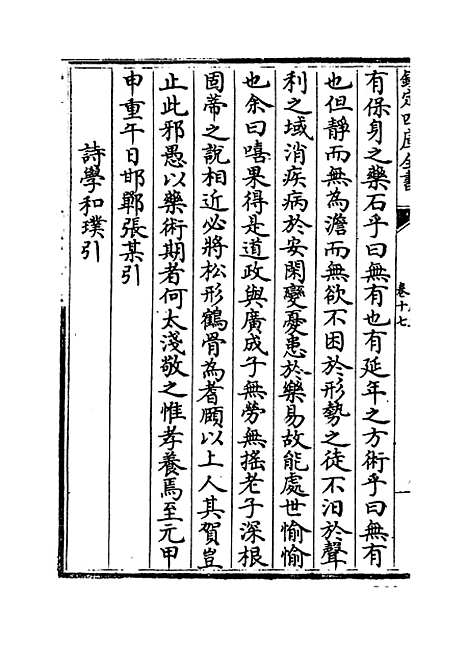 欽定四庫全書
卷十七
有保身之藥石乎曰無有也有延年之方術乎曰無有
也但靜而無為澹而無欲不困於形勢之徒不汨於聲
利之域消疾病於安閑變憂患於樂易故能處世愉愉
也余曰嘻果得是道政與廣成子無勞無搖老子深根
固蒂之說相近必將松形鶴骨為耆頤以上人其賀豈
止此邪愚以藥術期者何太淺敬之惟孝養焉至元甲
申重午日邯鄲張某引
詩學和璞引